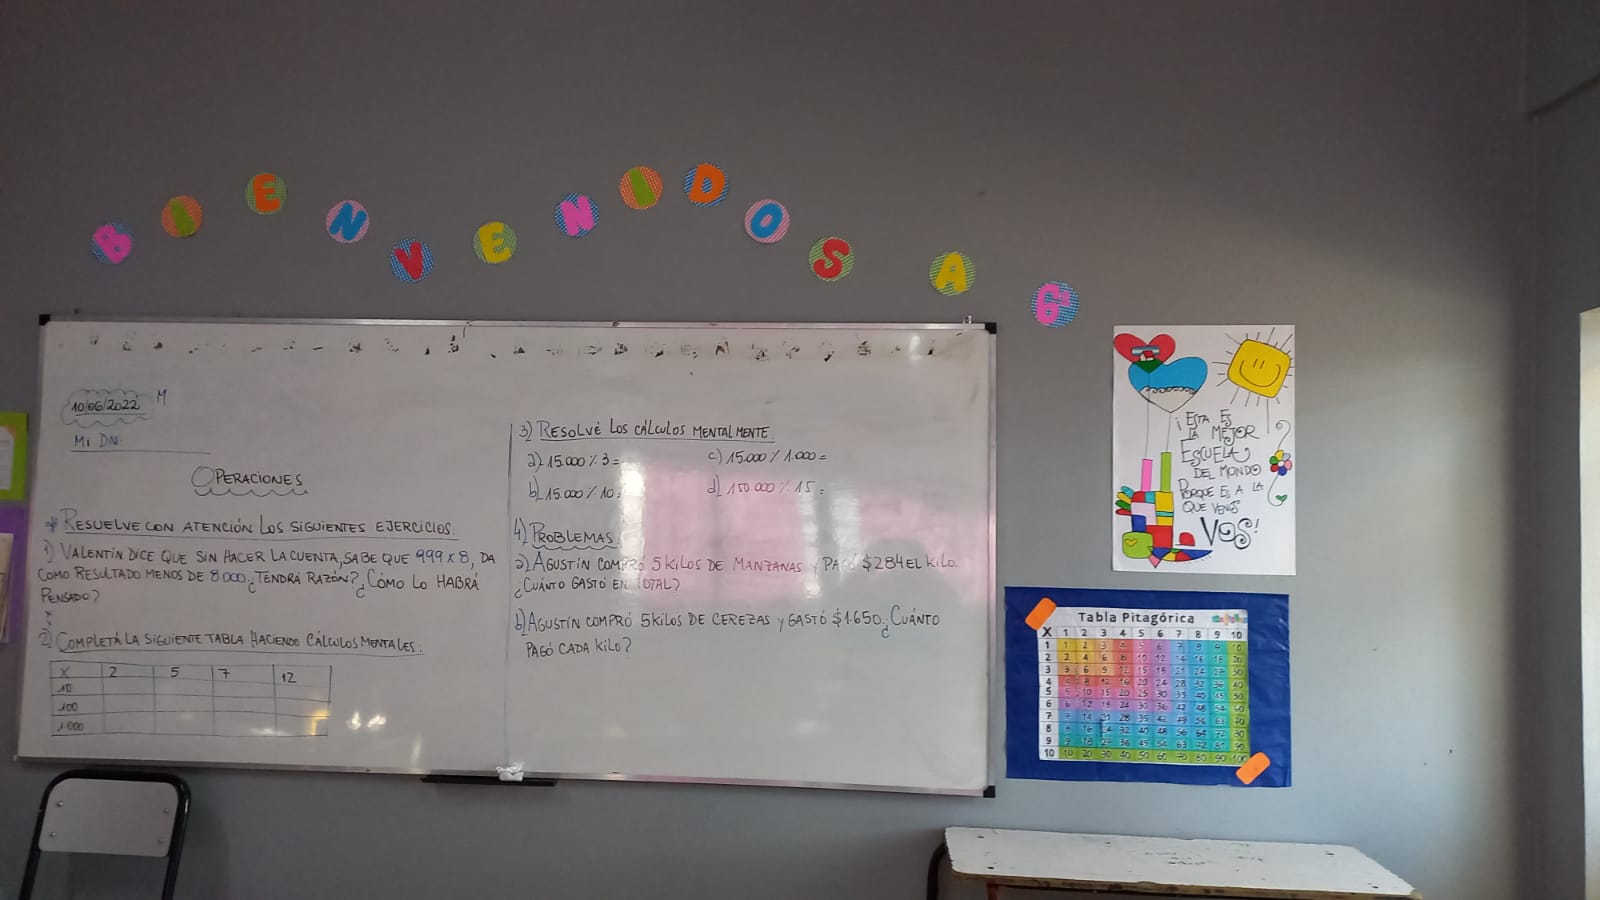 BIENVENIDOS A 6°
10/06/2022 M
Mi DN:
OPERACIONES
RESUELVE CON ATENCIÓN LOS SIGUIENTES EJERCICIOS.
1) VALENTÍN DICE QUE SIN HACER LA CUENTA, SABE QUE 999 X 8, DA
COMO RESULTADO MENOS DE 8.000. ¿TENDRÁ RAZÓN? ¿CÓMO LO HABRÁ
PENSADO?
2) COMPLETÁ LA SIGUIENTE TABLA HACIENDO CÁLCULOS MENTALES.
X 2 5 7 12
10
100
1.000
3) RESOLVÉ LOS CÁLCULOS MENTALMENTE:
a) 15.000 % 3 =
c) 15.000 % 1.000 =
b) 15.000 % 10 =
d) 150.000 % 15 =
4) PROBLEMAS
a) AGUSTÍN COMPRÓ 5 KILOS DE MANZANAS Y PAGÓ $284 EL KILO.
¿CUÁNTO GASTÓ EN TOTAL?
b) AGUSTÍN COMPRÓ 5 KILOS DE CEREZAS Y GASTÓ $1.650. ¿CUÁNTO
PAGÓ CADA KILO?
¡ESTA ES
LA MEJOR
ESCUELA
DEL MONDO
PORQUE ES A LA
QUE VENÍS
VOS!
Tabla Pitagórica
X 1 2 3 4 5 6 7 8 9 10
1 1 2 3 4 5 6 7 8 9 10
2 2 4 6 8 10 12 14 16 18 20
3 3 6 9 12 15 18 21 24 27 30
4 4 8 12 16 20 24 28 32 36 40
5 5 10 15 20 25 30 35 40 45 50
6 6 12 18 24 30 36 42 48 54 60
7 7 14 21 28 35 42 49 56 63 70
8 8 16 24 32 40 48 56 64 72 80
9 9 18 27 36 45 54 63 72 81 90
10 10 20 30 40 50 60 70 80 90 100